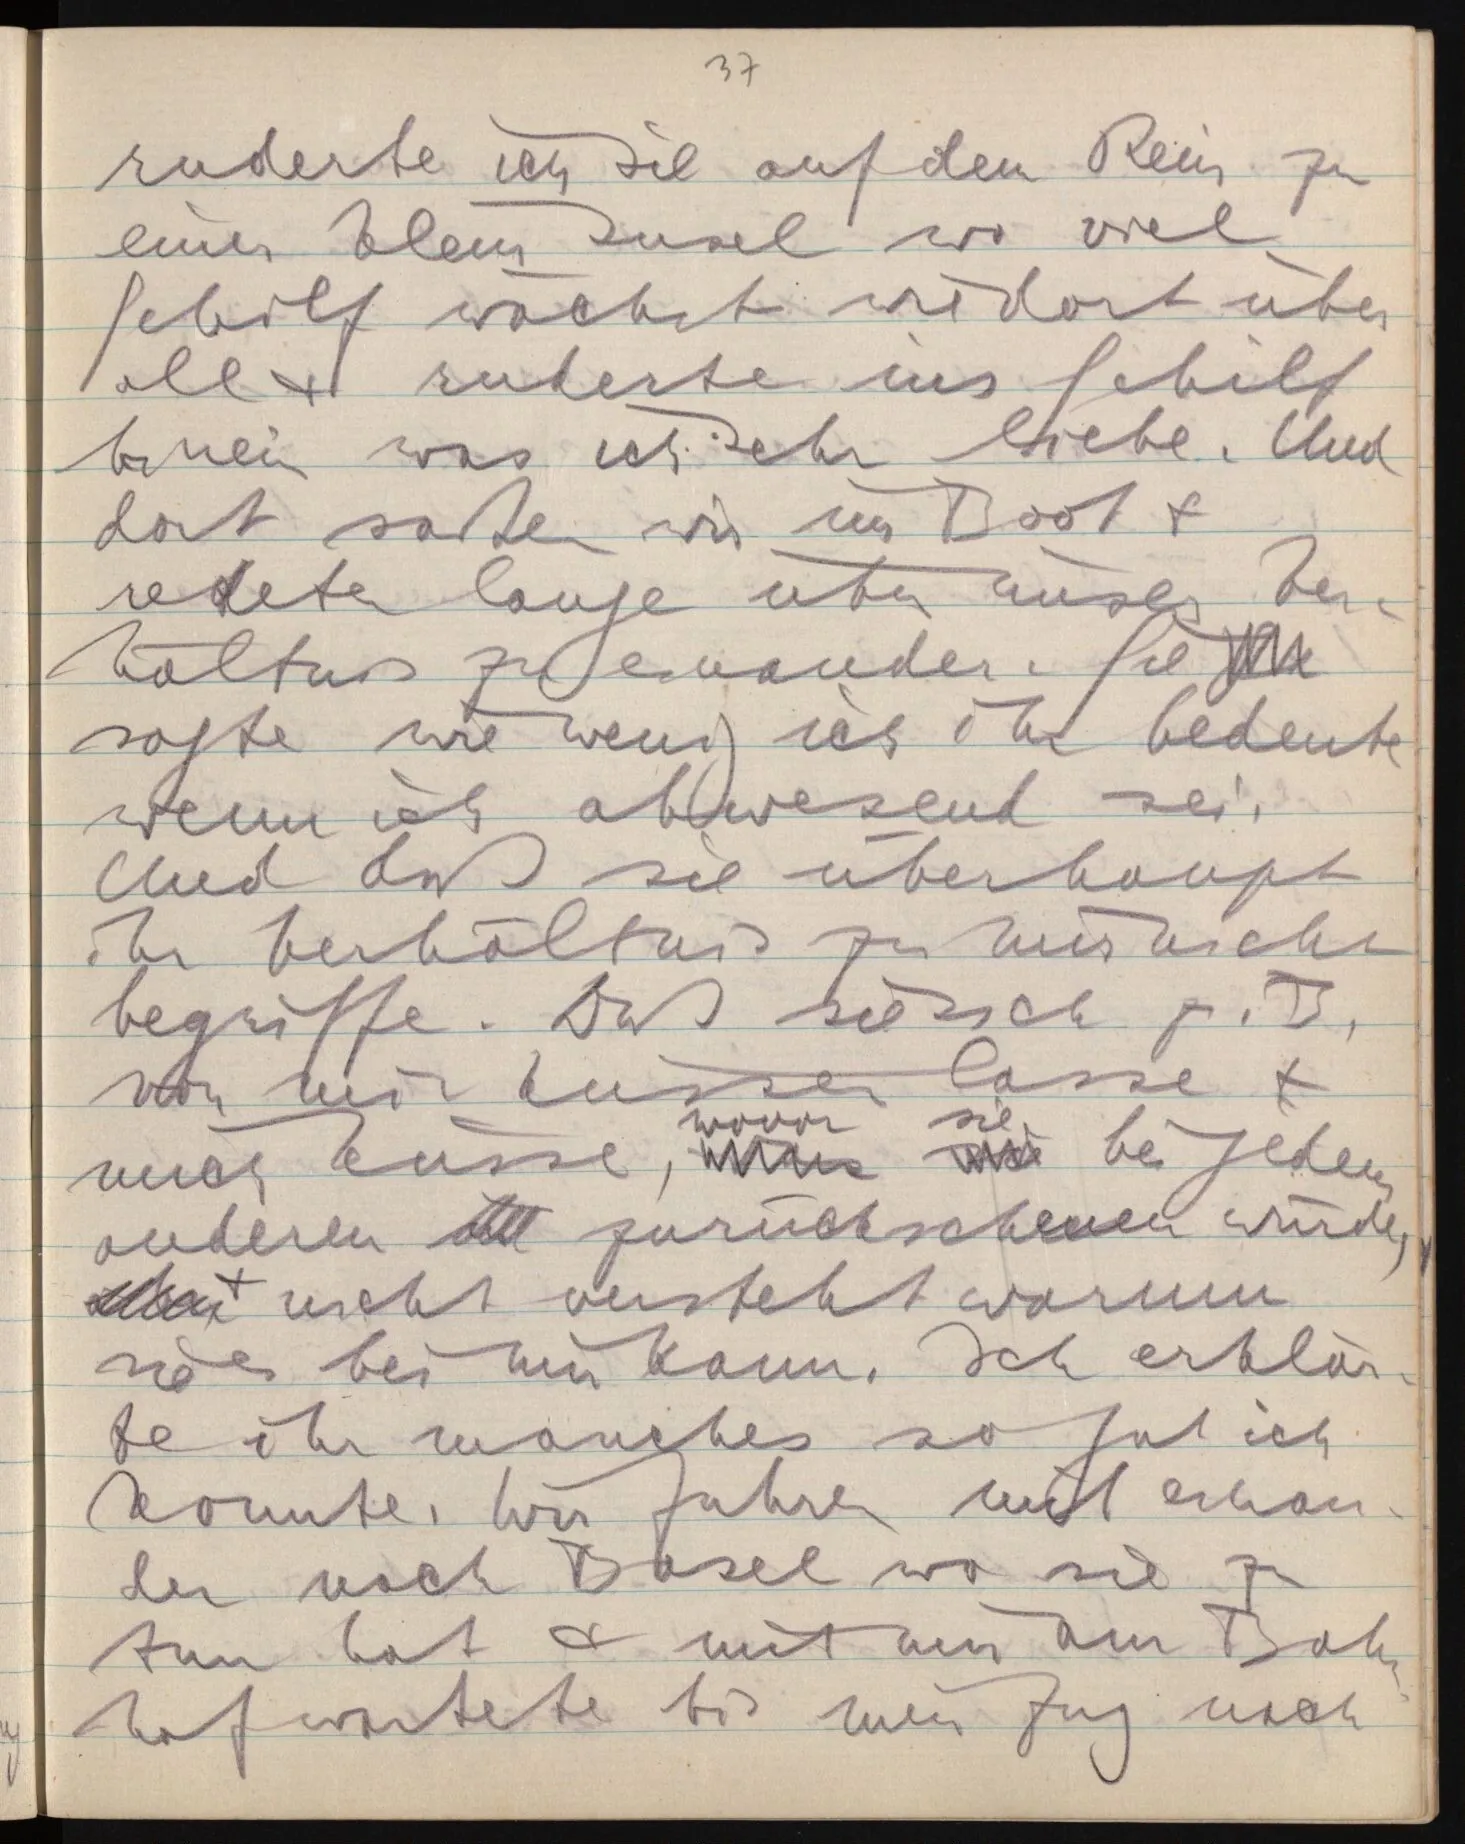 37
ruderte ich sie auf den Rein zu
einer klein Insel wo viel
Schilf wächst wie dort über
all & ruderte ins Schilf
hinein was ich sehr liebe. Und
dort saßen wir im Boot &
redeten lange über unser Ver-
hältnis zu einander. Sie
sagte wie wenig ich ihr bedeute
wenn ich abwesend sei.
Und daß sie überhaupt
ihr Verhältnis zu mir nicht
begriffe. Daß sie sich z. B.
von mir küssen lasse &
wovor sie
mich küsse, bei jedem
anderen zurückscheuen würde,
& nicht versteht warum
sie es bei mir kann. Ich erklär-
te ihr manches so gut ich
konnte. Wir fuhren mit einan-
der nach Basel wo sie zu
tun hat & mit mir am Bahn
hof wartete bis mein Zug nach